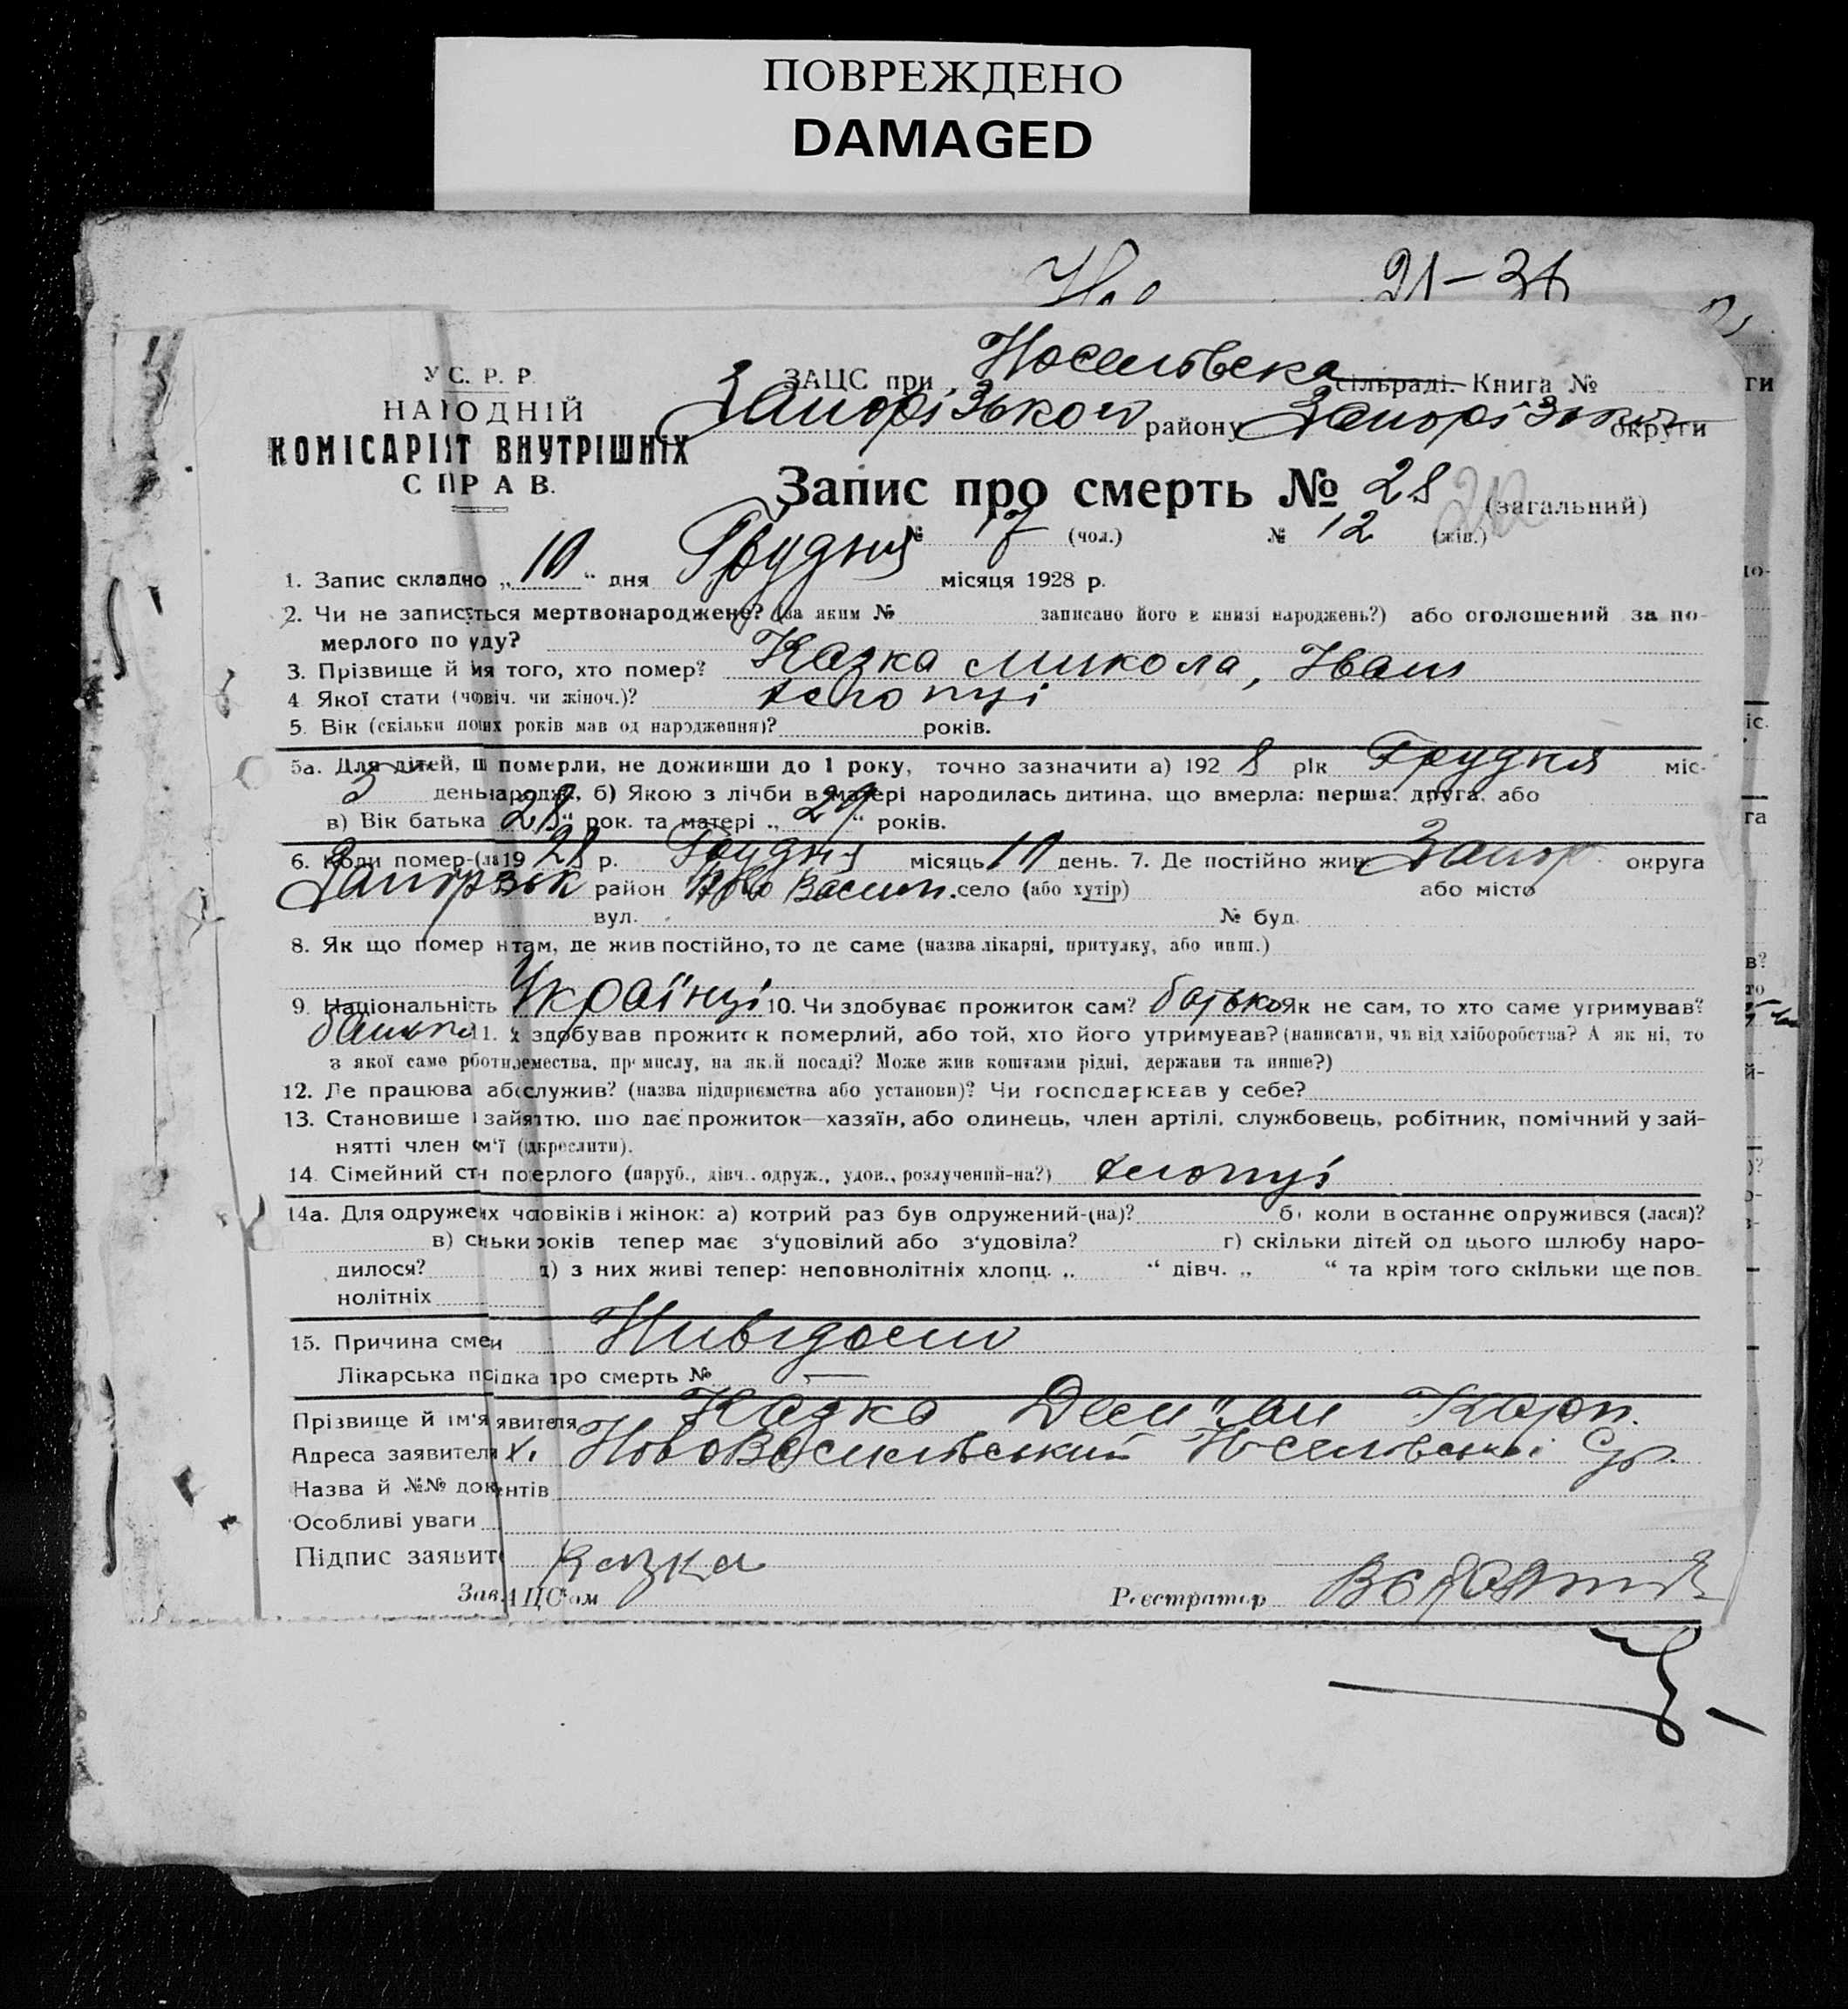 ПОВРЕЖДЕНО
DAMAGED
21-36
У С. Р. Р.
НАРОДНІЙ
КОМІСАРІЯТ ВНУТРІШНІХ
СПРАВ.
ЗАЦС при сільраді. Книга №
Запорізького району Запорізької округи
Запис про смерть № 28 (загальний)
№ 17 (чол.) № 12 (жін.)
1. Запис складно „10“ дня Грудня місяця 1928 р.
2. Чи не записється мертвонароджене? (за яким № записано його в книзі народжень?) або оголошений за по-
мерлого по уду?
3. Прізвище й мя того, хто помер? Казка Микола, Іван
4 Якої стати (човіч. чи жіноч.)? хлопці
5. Вік (скільки повних років мав од народження)? років.
5а. Для дітей, що померли, не доживши до 1 року, точно зазначити а) 1928 рік Грудня міс-
3 день народж., б) Якою з лічби в матері народилась дитина, що вмерла: перша, друга, або
в) Вік батька „28“ рок. та матері „29“ років.
6. Коли помер-(ла) 1928 р. Грудня місяць 10 день. 7. Де постійно жив Запор. округа
Запорізьк район Ново Васил. село (або хутір) або місто
вул. № буд.
8. Як що помер н там, де жив постійно, то де саме (назва лікарні, притулку, або инш.)
9. Національність Українці 10. Чи здобуває прожиток сам? батько Як не сам, то хто саме утримував?
батько 11. здобував прожиток померлий, або той, хто його утримував? (написати, чи від хліборобства? А як ні, то
з якої саме роботи, ремества, промислу, на якій посаді? Може жив коштами рідні, держави та инше?)
12. Де працював або служив? (назва підприємства або установи)? Чи господарював у себе?
13. Становище зайняттю, що дає прожиток—хазяїн, або одинець, член артілі, службовець, робітник, помічний у зай-
нятті член ім'ї (ідкреслити).
14. Сімейний стн поерлого (паруб., дівч., одруж., удов., розлучений-на?) хлопці
14а. Для одружених чоловіків і жінок: а) котрий раз був одружений-(на)? б) коли в останнє одружився (лася)?
в) скільки років тепер має з'удовілий або з'удовіла? г) скільки дітей од цього шлюбу наро-
дилося? д) з них живі тепер: неповнолітніх хлопц. „ “ дівч. „ “ та крім того скільки ще пов-
нолітніх
15. Причина смеи
Лікарська посідка про смерть № —
Прізвище й ім'я явителя Казка Дем'ян Карп.
Адреса заявителя х. Нововасилівський
Назва й №№ докентів
Особливі уваги
Підпис заявит Казка
Зав.АЦС'ом Реєстратор